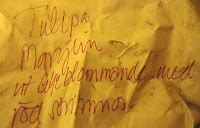 Tulipa
Marylin
vit liljeblommande med
röd strimmor.